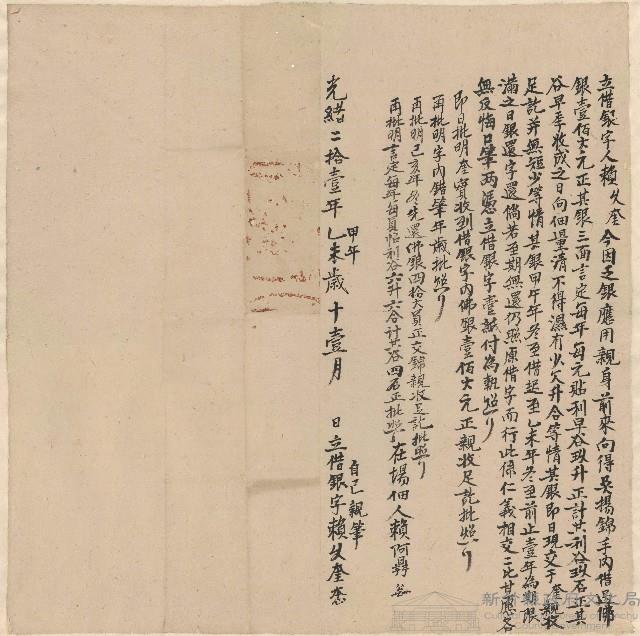 立借銀字人賴文奎今因乏銀應用親身前來向得吳揚錦手內借過佛
銀壹佰大元正其銀三面言定每年每元貼利早谷玖升正計共利谷玖石正其
谷早季收成之日向佃量清不得濕冇少欠升合等情其銀即日現交于奎親收
足訖并無短少等情其銀甲午年冬至借起至乙未年冬至前止壹年為期限
滿之日銀還字還倘若至期無還仍照原借字而行此係仁義相交二比甘愿各
無反悔口筆两憑立借銀字壹紙付為執照
即日批明奎實收到借銀字內佛銀壹佰大元正親收足訖批照
再批明字內錯筆年歲批照
再批明己亥年冬先還佛銀四拾大員正交錦親收足訖批照
再批明言定每年每員怗利谷六升六合計共谷四石正批照
在場佃人賴阿鼎
光緒二拾壹年乙未歲十壹月 日立借銀字賴文奎
甲午
自己親筆
新竹縣政府文化局